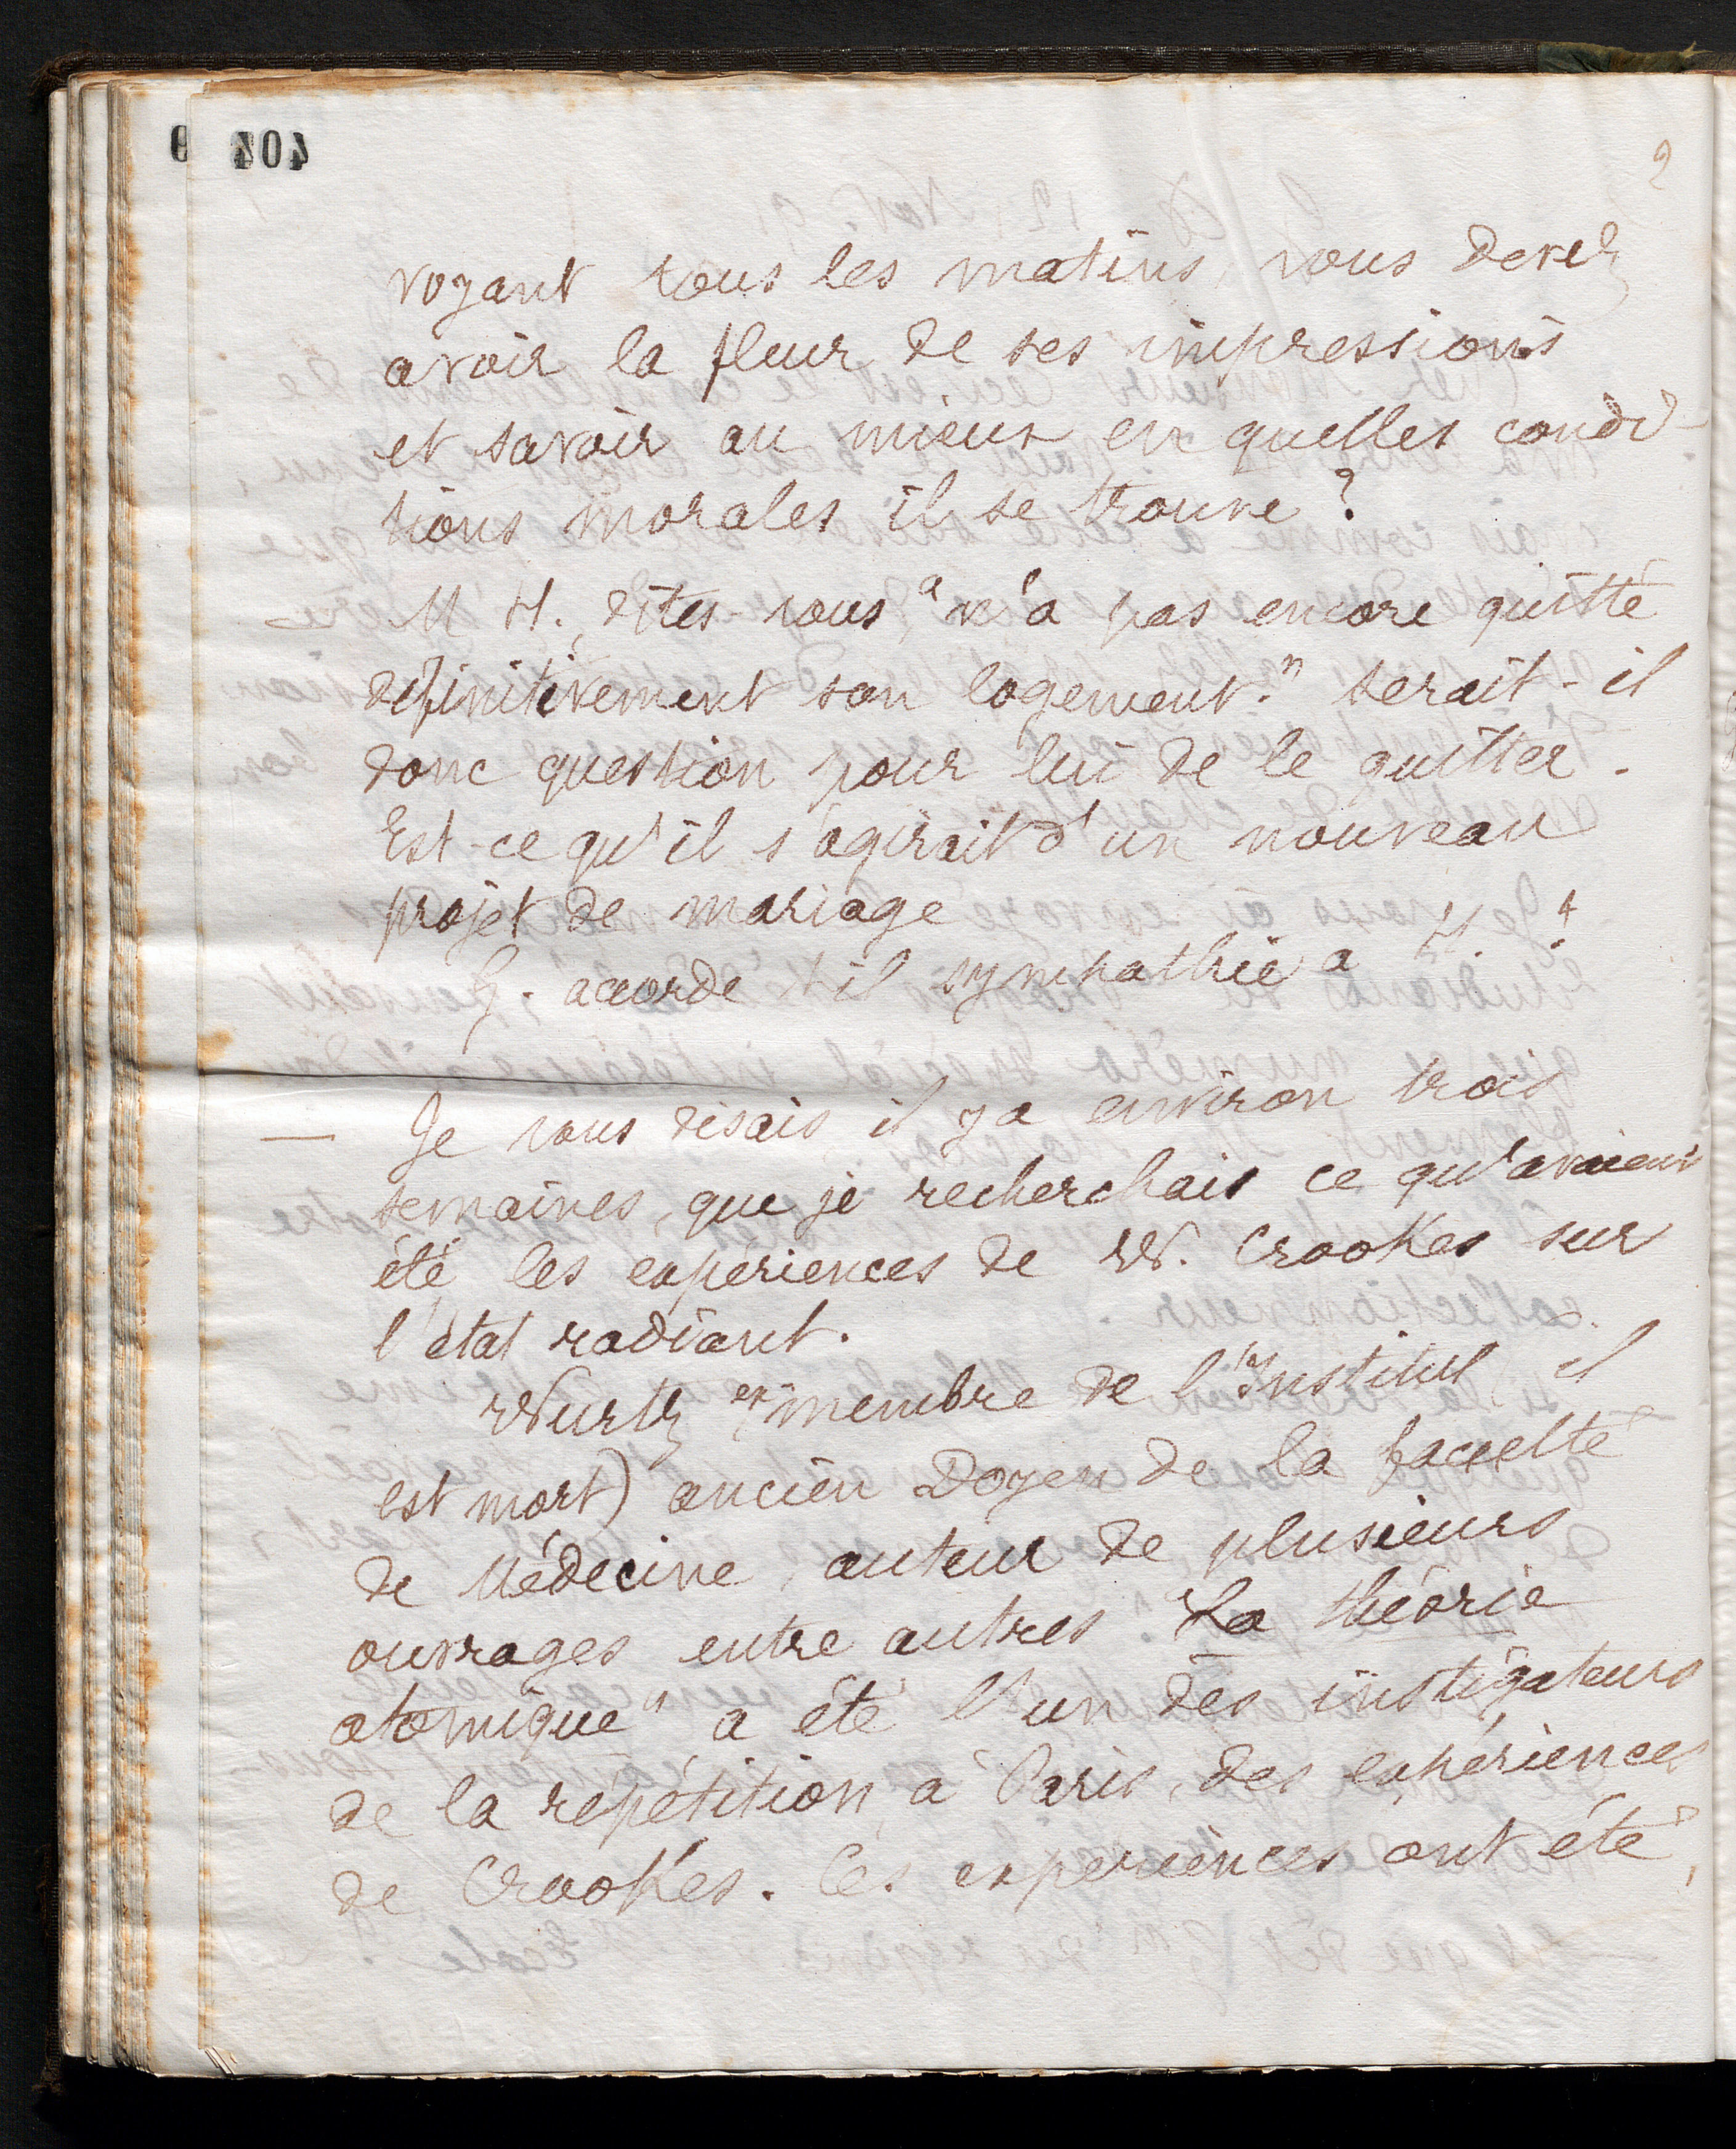 2
voyant tous les matins, vous devez
avoir la fleur de ses impressions
et savoir au mieux en quelles condi-
tions morales il se trouve ?
— M H. dites-vous, "n'a pas encore quitté
définitivement son logement." serait-il
donc question pour lui de le quitter.
Est-ce qu'il s'agirait d'un nouveau
projet de mariage
G. accorde t il sympathie a H. ?
— Je vous disais, il y a environ trois
semaines, que je recherchais ce qu'avaient
été les expériences de W. Crookes sur
l'état radiant.
Wurtz ex membre de l'Institut (il
est mort) ancien Doyen de la faculté
de Médecine, auteur de plusieurs
ouvrages entre autres "La théorie
atomique" a été l'un des instigateurs
de la répétition, à Paris, des expériences
de Crookes. Ces expériences ont été,